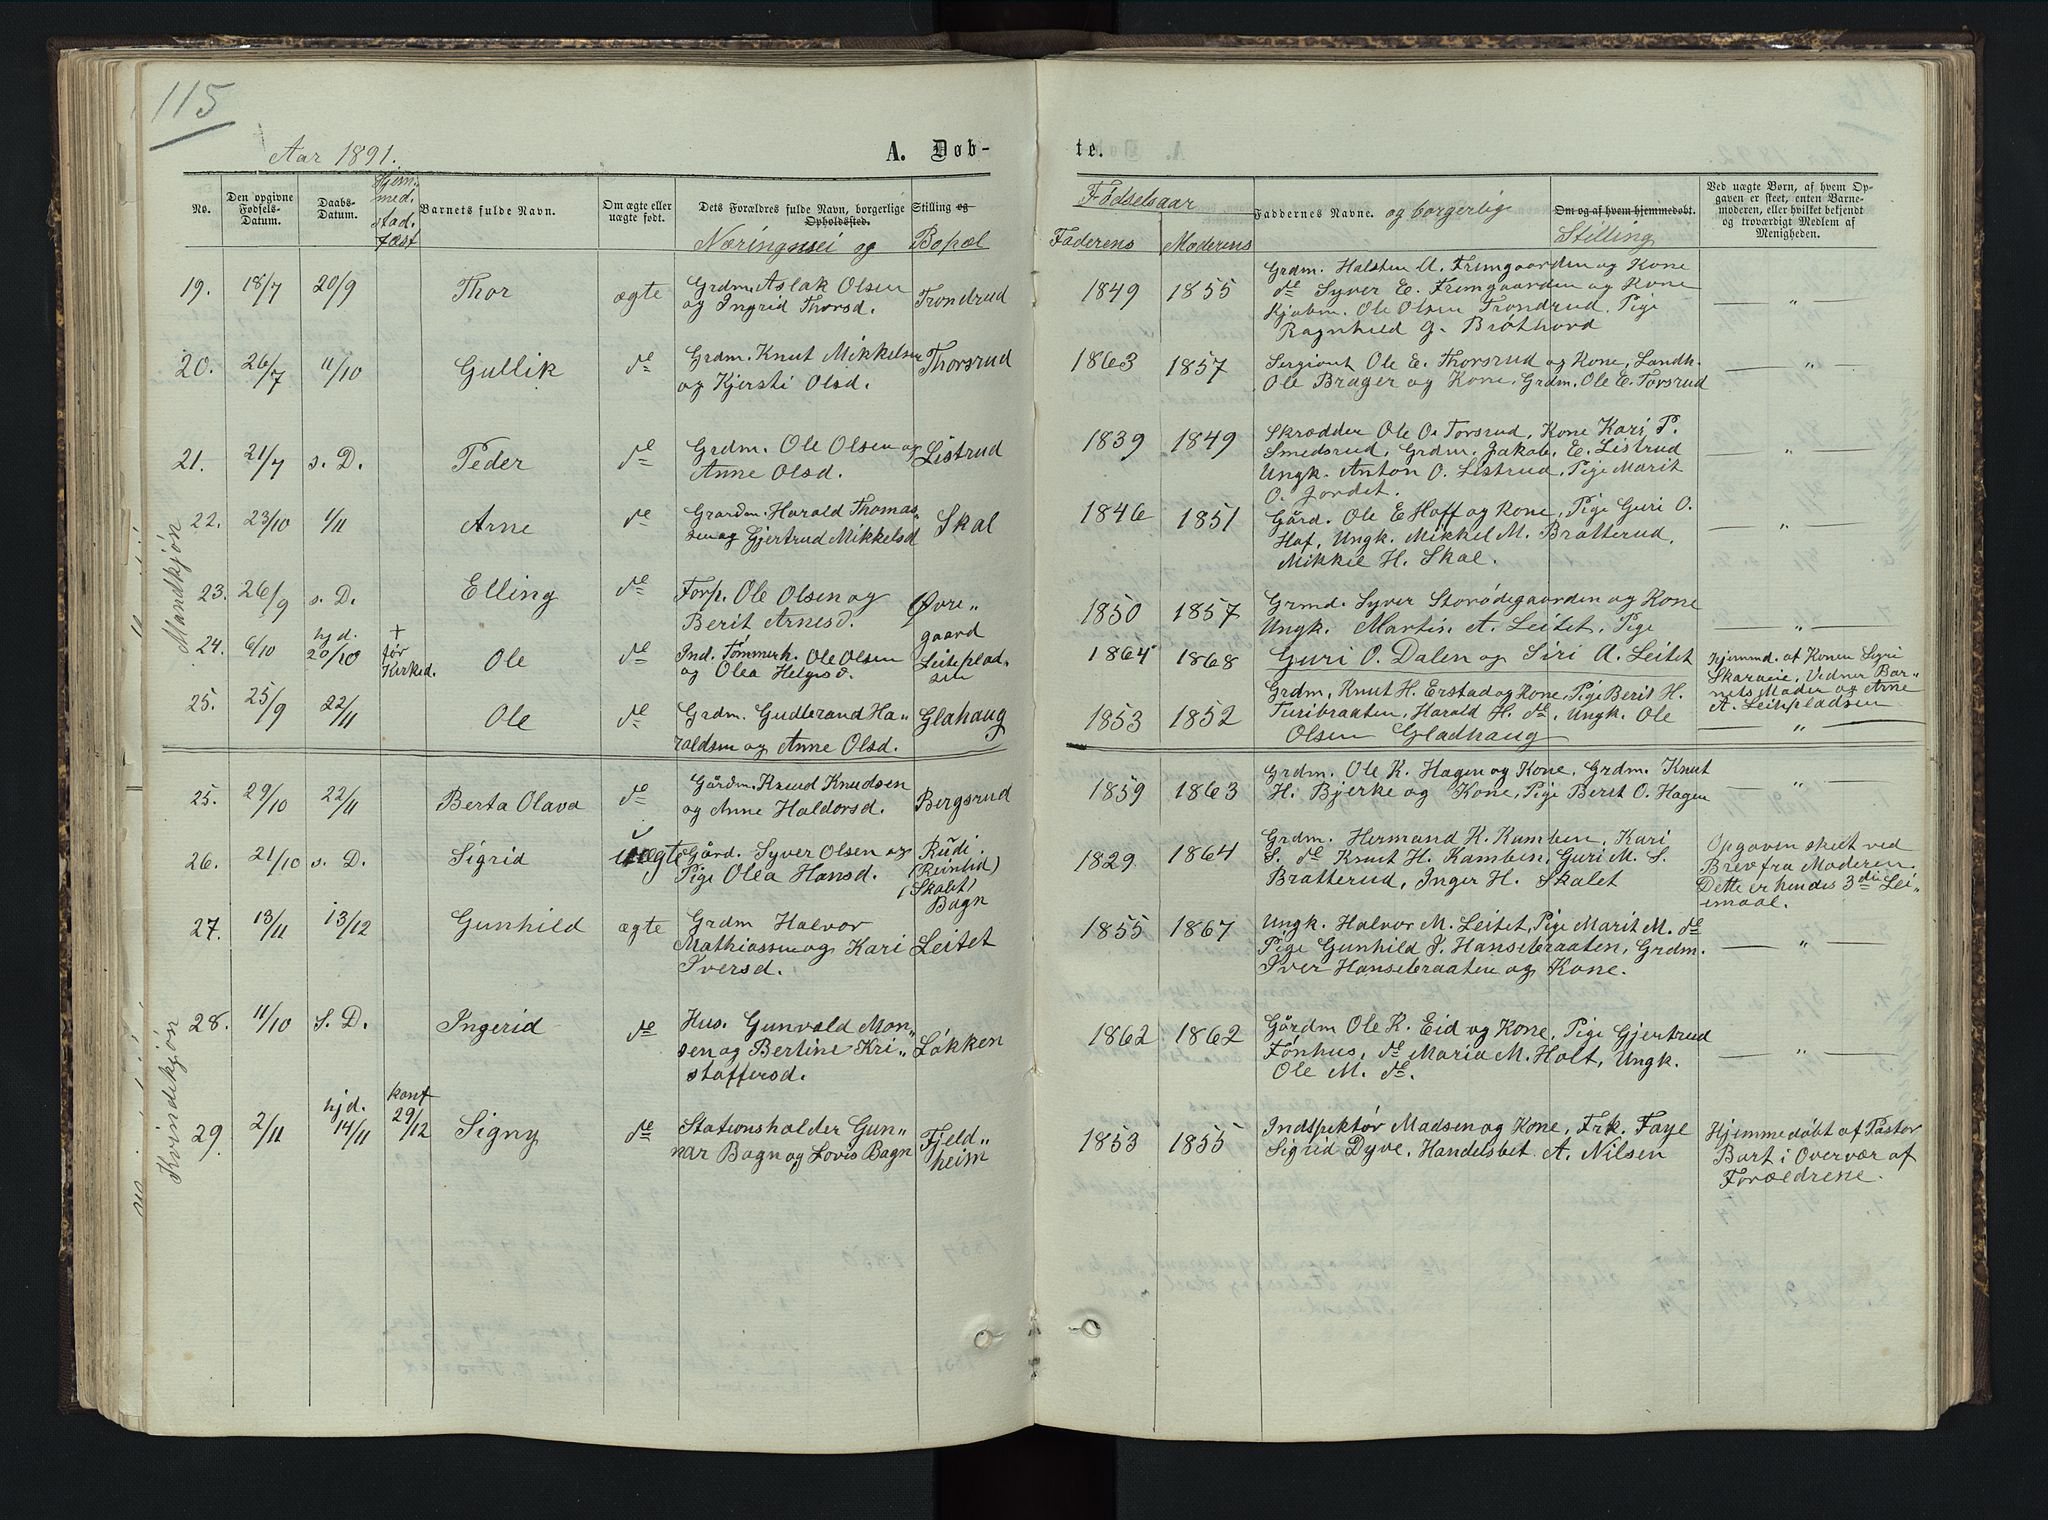 115
Aar 1891.
A. Døb-
te.
No.
Den opgivne Fødsels-Datum.
Daabs-Datum.
Hjem-
med.
stad.
fæst
Barnets fulde Navn.
Om ægte eller uægte født.
Dets Forældres fulde Navn, borgerlige Stilling og Opholdssted.
Næringsvei og Bopæl
Fødselsaar
Faderens Moderens
Faddernes Navne. og borgerlig
Om og af hvem hjemmedøbt.
Stilling
Ved uægte Børn, af hvem Op-
gaven er skeet, enten Barne-
moderen, eller hvilket bekjendt
og troværdigt Medlem af
Menigheden.
Mandkjøn
19. 18/7 20/9 Thor ægte Grdm. Aslak Olsen
og Ingrid Thorsd. Trondrud
1849 1855 Grdm. Halsten A. Fremgaarden og Kone
de Syver E. Fremgaarden og Kone
Kjøbm. Ole Olsen Trondrud. Pige
Ragnhild G. Brøthovd
— " —
20. 26/7 11/10 Gullik de Grdm. Knut Mikkelsen
og Kjersti Olsd. Thorsrud
1863 1857 Sergiant Ole E. Thorsrud og Kone, Landh.
Ole Brager og Kone. Grdm. Ole E. Torsrud
— " —
21. 21/7 s. D. Peder de Grdm. Ole Olsen og
Anne Olsd. Listrud
1839 1849 Skrædder Ole O. Torsrud, Kone Kari P.
Smedsrud, Grdm. Jakob. E. Listrud
Ungk. Anton O. Listrud, Pige Marit
O. Jordet.
— " —
22. 23/10 1/11 Arne de Graardm. Harald Thomas-
sen og Gjertrud Mikkelsd Skal
1846 1851 Gård. Ole E Hoff og Kone, Pige Guri O.
Hof, Ungk. Mikkel M. Bratterud,
Mikkel H. Skal.
— " —
23. 26/9 s. D. Elling de Forp. Ole Olsen og
Berit Arnesd. Øvre "
gaard
1850 1857 Grmd. Syver Storødegaarden og Kone
Ungk. Martin A. Leitet. Pige
Guri O. Dalen og Siri A. Leitet
— " —
24. 6/10 hjd. 20/10 + før Kirked. Ole de Ind. Tømmerh. Ole Olsen
og Olea Helgesd. Leiteplad-
sen
1864 1868
Hjemmd. af Konen Sigri
Skaraeie, Vidner Bar-
nets Moder og Arne
A. Leitepladsen
25. 25/9 22/11 Ole de Grdm. Gudbrand Ha-
raldsen og Anne Olsd. Glahaug
1853 1852 Grdm, Knut H. Erstad og Kone, Pige Berit H.
Turibraaten, Harald H. de, Ungk. Ole
Olsen Gladhaug
— " —
Kvindekjøn
25. 29/10 22/11 Berta Olava de Gårdm. Knud Knudsen
og Anne Haldorsd. Bergsrud
1859 1863 Grdm. Ole K. Hagen og Kone. Grdm. Knut
H. Bjerke og Kone, Pige Berit O. Hagen
— " —
26. 21/10 s. D. Sigrid uægte Gård. Syver Olsen og
Pige Olea Hansd. Rudi.
(Reinlid)
(Skalet)
Bagn
1829 1864 Grdm. Hermand K. Kamben, Kari
S. de Knut H. Kamben, Guri M. S.
Bratterud, Inger H. Skalet
Opgaven skeet ved
Brev fra Moderen.
Dette er hendes 3die Lei-
ermaal.
27. 13/11 13/12 Gunhild ægte Grdm Halvor
Mathiassen og Kari
Iversd. Leitet
1855 1867 Ungk. Halvor M. Leitet, Pige Marit M. de
Pige Gunhild I. Hansebraaten, Grdm.
Iver Hansebraaten og Kone.
— " —
28. 11/10 s. D. Ingerid de Hus. Gunvald Mon-
sen og Bertine Kri-
staffersd. Løkken
1862 1862 Gårdm Ole K. Eid og Kone, Pige Gjertrud
Tønhus, de Maria M. Holt, Ungk.
Ole M. de.
— " —
29. 2/11 hjd. 14/11 konf 29/12 Signy de Stationsholder Gun-
nar Bagn og Lovis Bagn Fjeld-
heim
1853 1855 Indspektør Madsen og Kone, Frk. Faye
Sigrid Dyve, Handelsbet. A. Nilsen
Hjemmedøbt af Pastor
Bart i Overvær af
Forældrene.